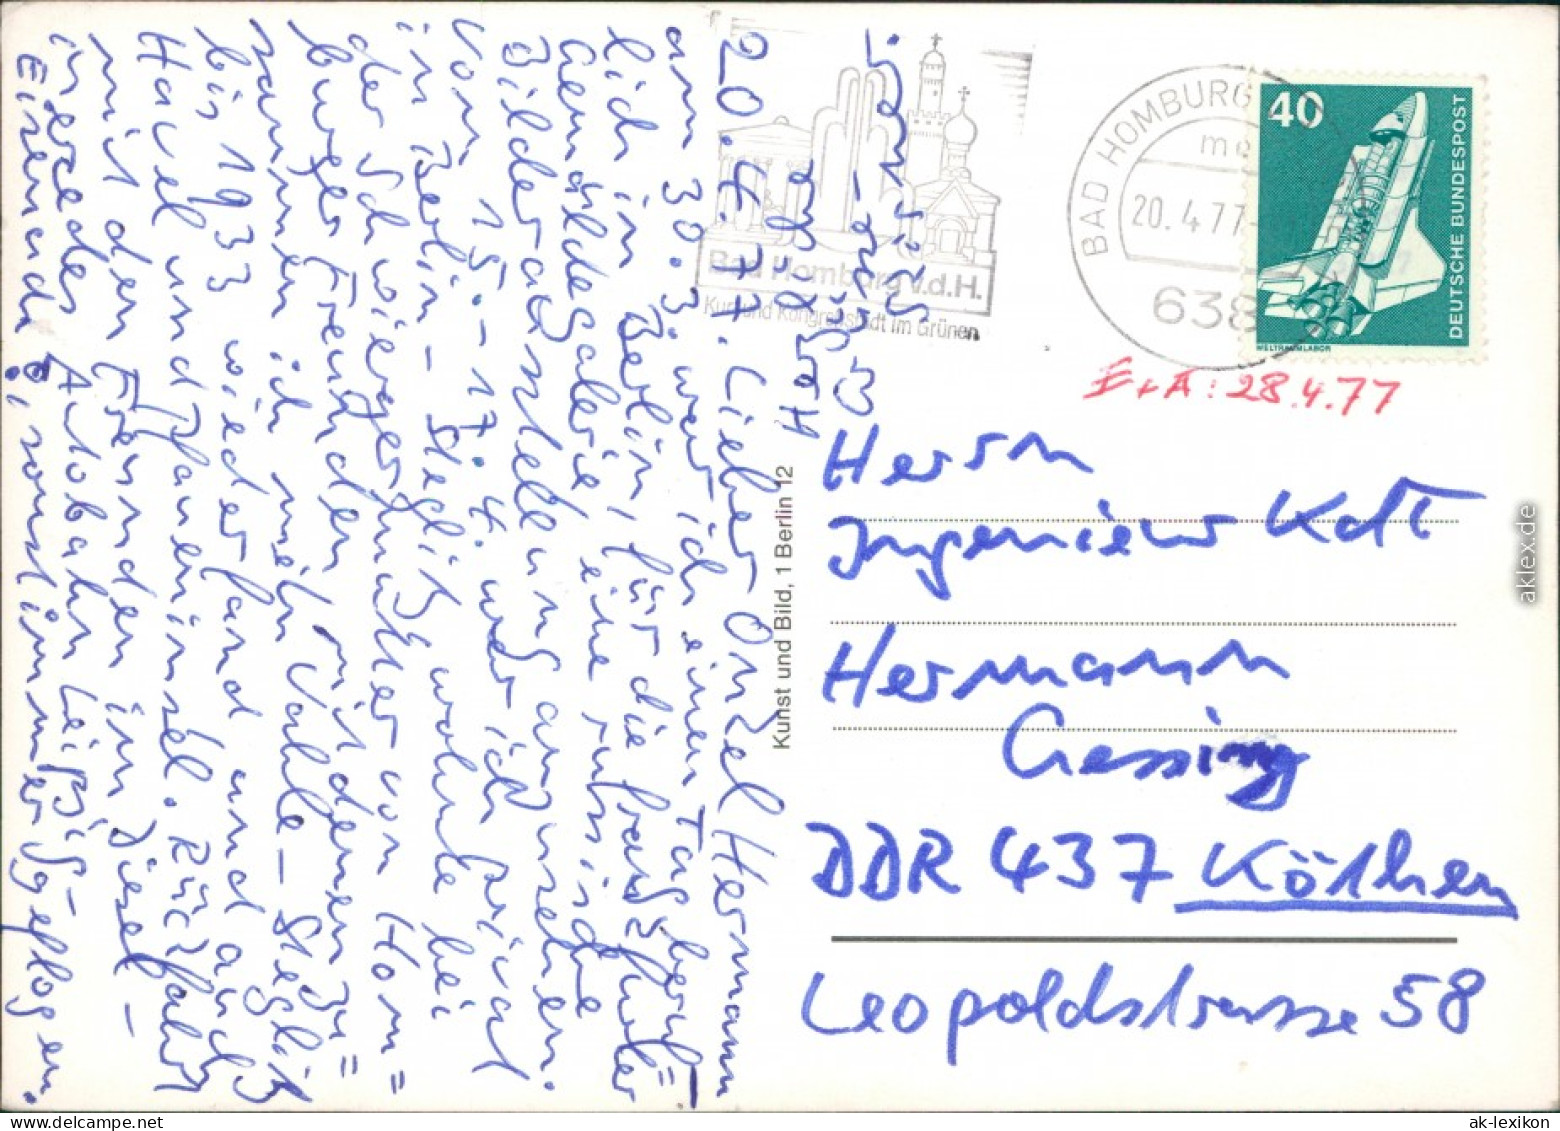 20.4.77. Lieber Onkel Hermann
am 30.3. war ich einen Tag beruf=
lich in Berlin, für die Frankfurter
Gemäldegalerie eine russische
Bilderausstellung anzusehen.
Vom 15.-17.4. war ich privat
in Berlin-Steglitz, wohnte bei
der Schwiegermutter von Hom=
burger Freunden mit denen zu=
sammen ich mein Vahle-Steglitz
bis 1933 wiederfand und auch
Havel und Pfaueninsel. Rückfahrt
mit den Freunden im Diesel-
mercedes Autobahn Leipzig-
Eisenach, sonst immer geflogen.
Herzl.
Grüße
Bad Homburg v.d.H.
Kur- und Kongreßstadt im Grünen
BAD HOMBURG
20.4.77
638
40
DEUTSCHE BUNDESPOST
WELTRAUMLABOR
E+A: 28.4.77
Kunst und Bild, 1 Berlin 12
Herrn
Ingenieur Kdt
Hermann
Gessing
DDR 437 Köthen
Leopoldstrasse 58
aklex.de
ak-lexikon